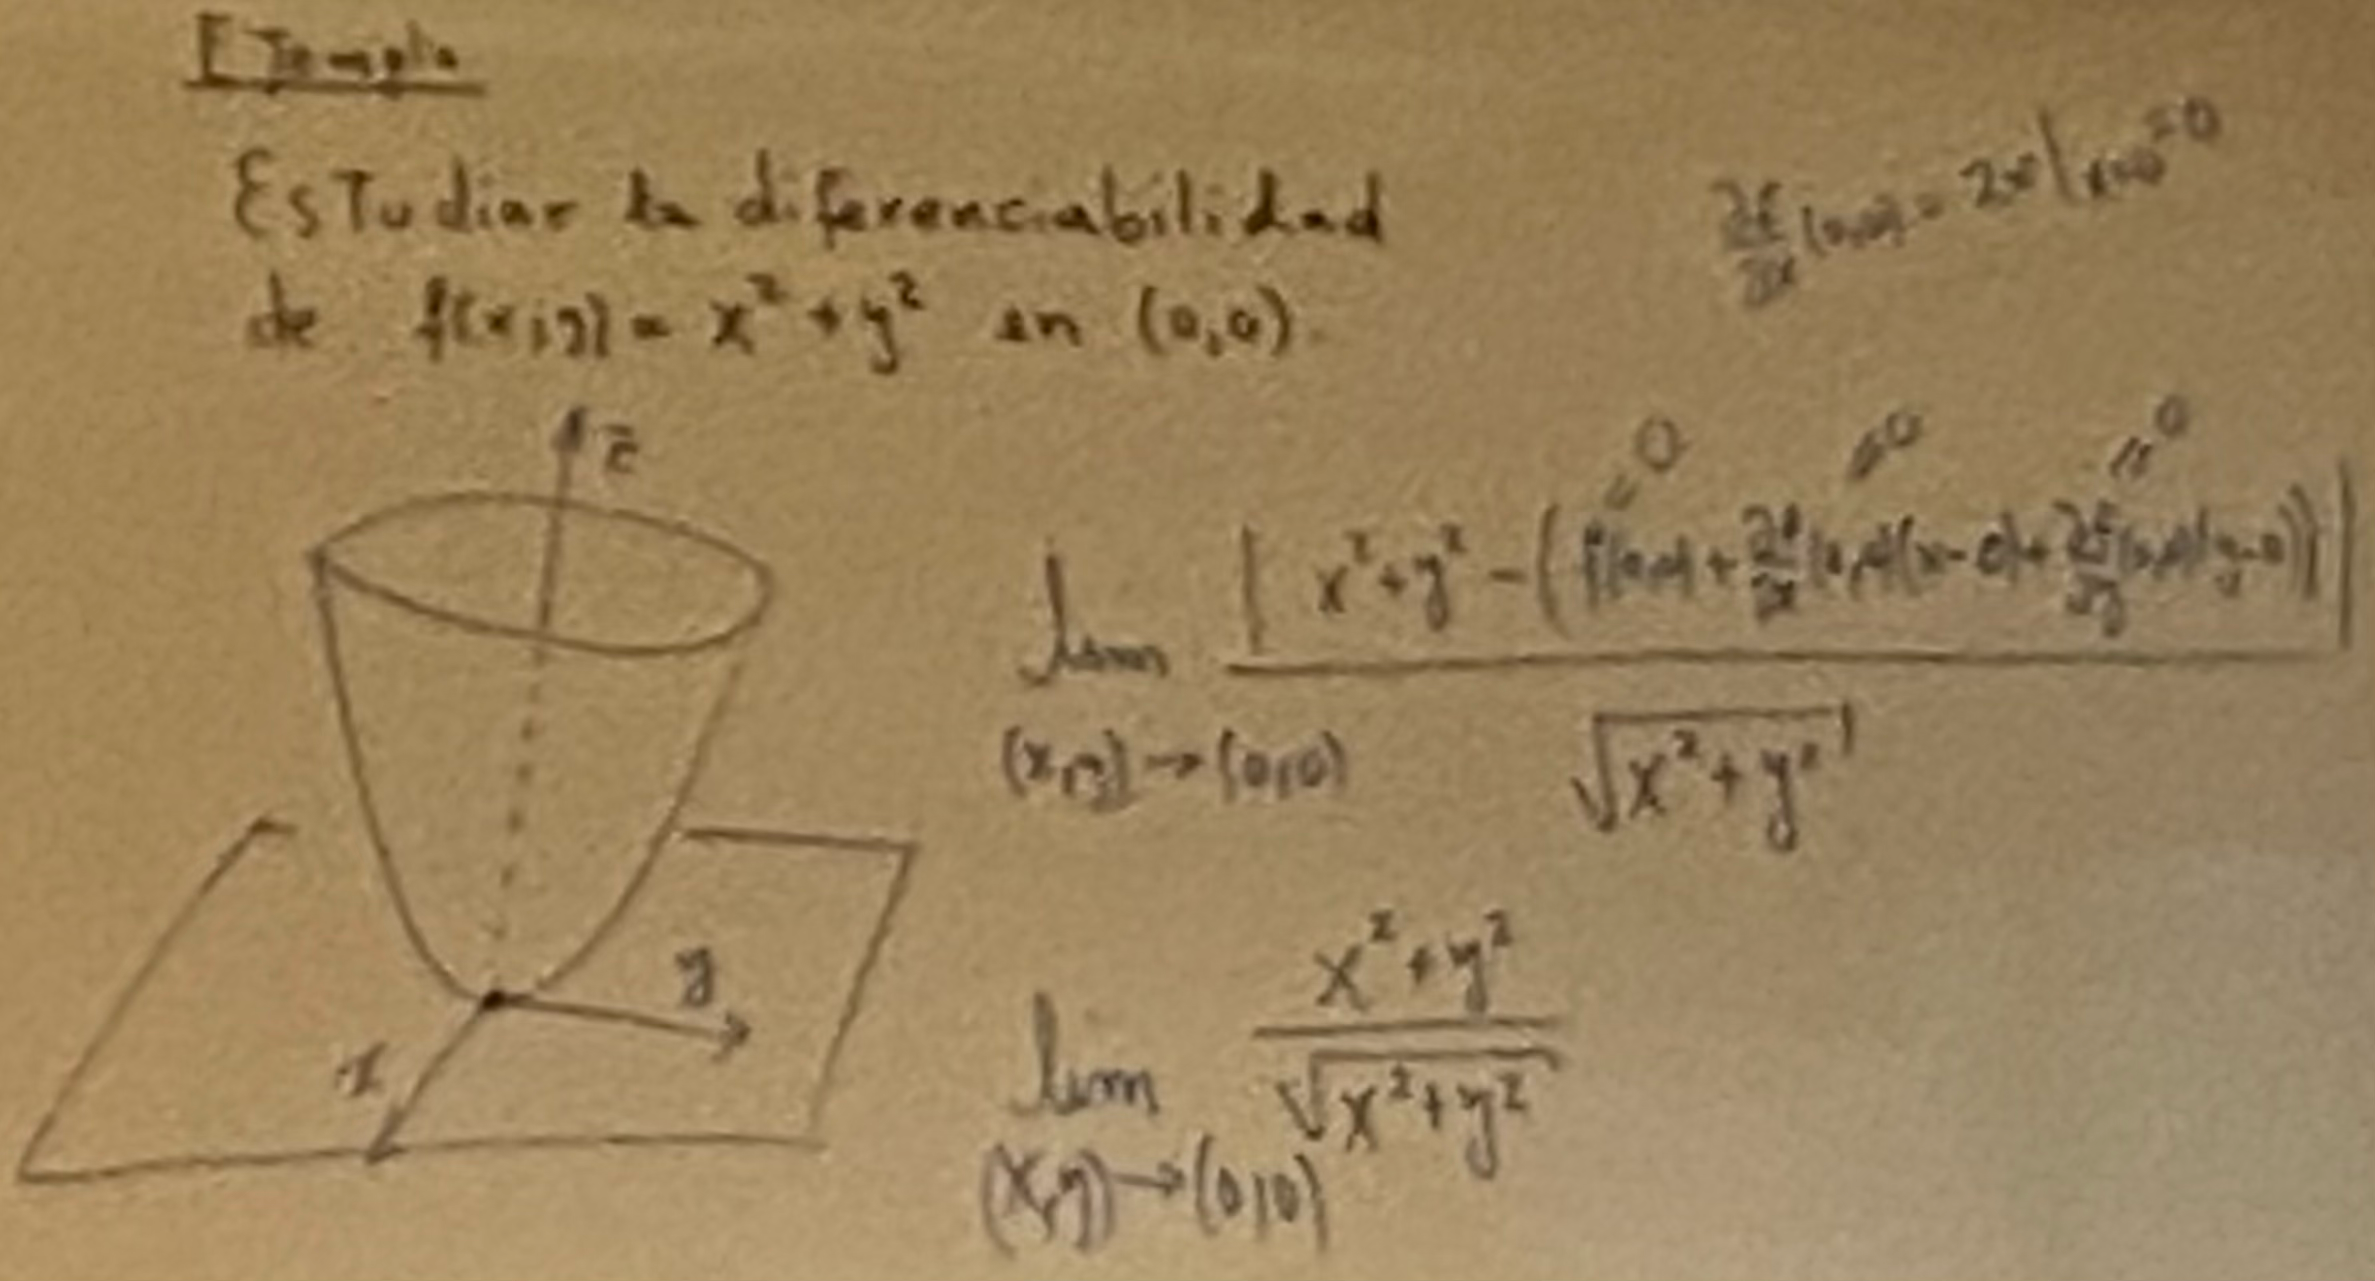 Ejemplo
Estudiar la diferenciabilidad
de f(x,y) = x² + y² en (0,0).
∂f/∂x (0,0) = 2x|x=0 = 0
z
= 0 = 0 = 0
lim |x² + y² - (f(0,0) + ∂f/∂x (0,0)(x-0) + ∂f/∂y (0,0)(y-0))|
(x,y)→(0,0) √x² + y²
y
x
lim x² + y² / √x² + y²
(x,y)→(0,0)